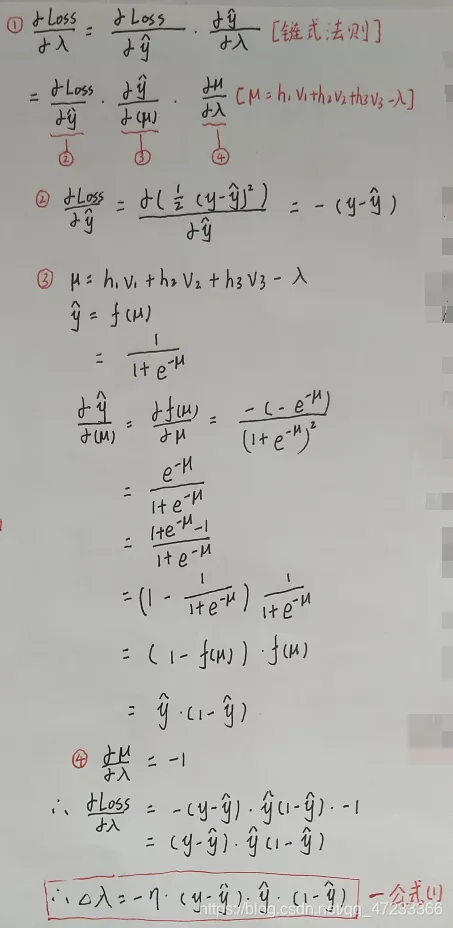 ① ∂Loss/∂λ = ∂Loss/∂ŷ · ∂ŷ/∂λ [链式法则]
= ∂Loss/∂ŷ · ∂ŷ/∂(μ) · ∂μ/∂λ [μ = h₁v₁+h₂v₂+h₃v₃-λ]
② ③ ④
② ∂Loss/∂ŷ = ∂(½(y-ŷ)²)/∂ŷ = -(y-ŷ)
③ μ = h₁v₁ + h₂v₂ + h₃v₃ - λ
ŷ = f(μ)
= 1/(1+e^-μ)
∂ŷ/∂(μ) = ∂f(μ)/∂μ = -(-e^-μ)/(1+e^-μ)²
= e^-μ/(1+e^-μ)
= (1+e^-μ-1)/(1+e^-μ)
= (1 - 1/(1+e^-μ)) 1/(1+e^-μ)
= (1-f(μ))·f(μ)
= ŷ·(1-ŷ)
④ ∂μ/∂λ = -1
∴ ∂Loss/∂λ = -(y-ŷ)·ŷ(1-ŷ)·-1
= (y-ŷ)·ŷ(1-ŷ)
∴ △λ = -η·(y-ŷ)·ŷ·(1-ŷ) —公式(1)
https://blog.csdn.net/qq_47233366